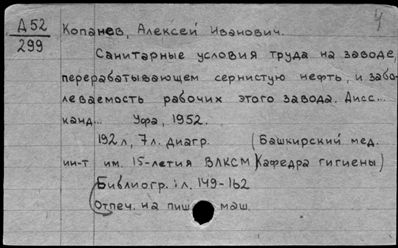 Д 52
299
Копанев, Алексей Иванович.
Санитарные условия труда на заводе,
перерабатывающем сернистую нефть, и забо-
леваемость рабочих этого завода. Дисс...
канд... Уфа, 1952.
192 л, 7 л. диагр. (Башкирский мед.
ин-т им. 15-летия ВЛКСМ) Кафедра гигиены)
Библиогр.: л. 149-162
Отпеч. на пиш. маш.